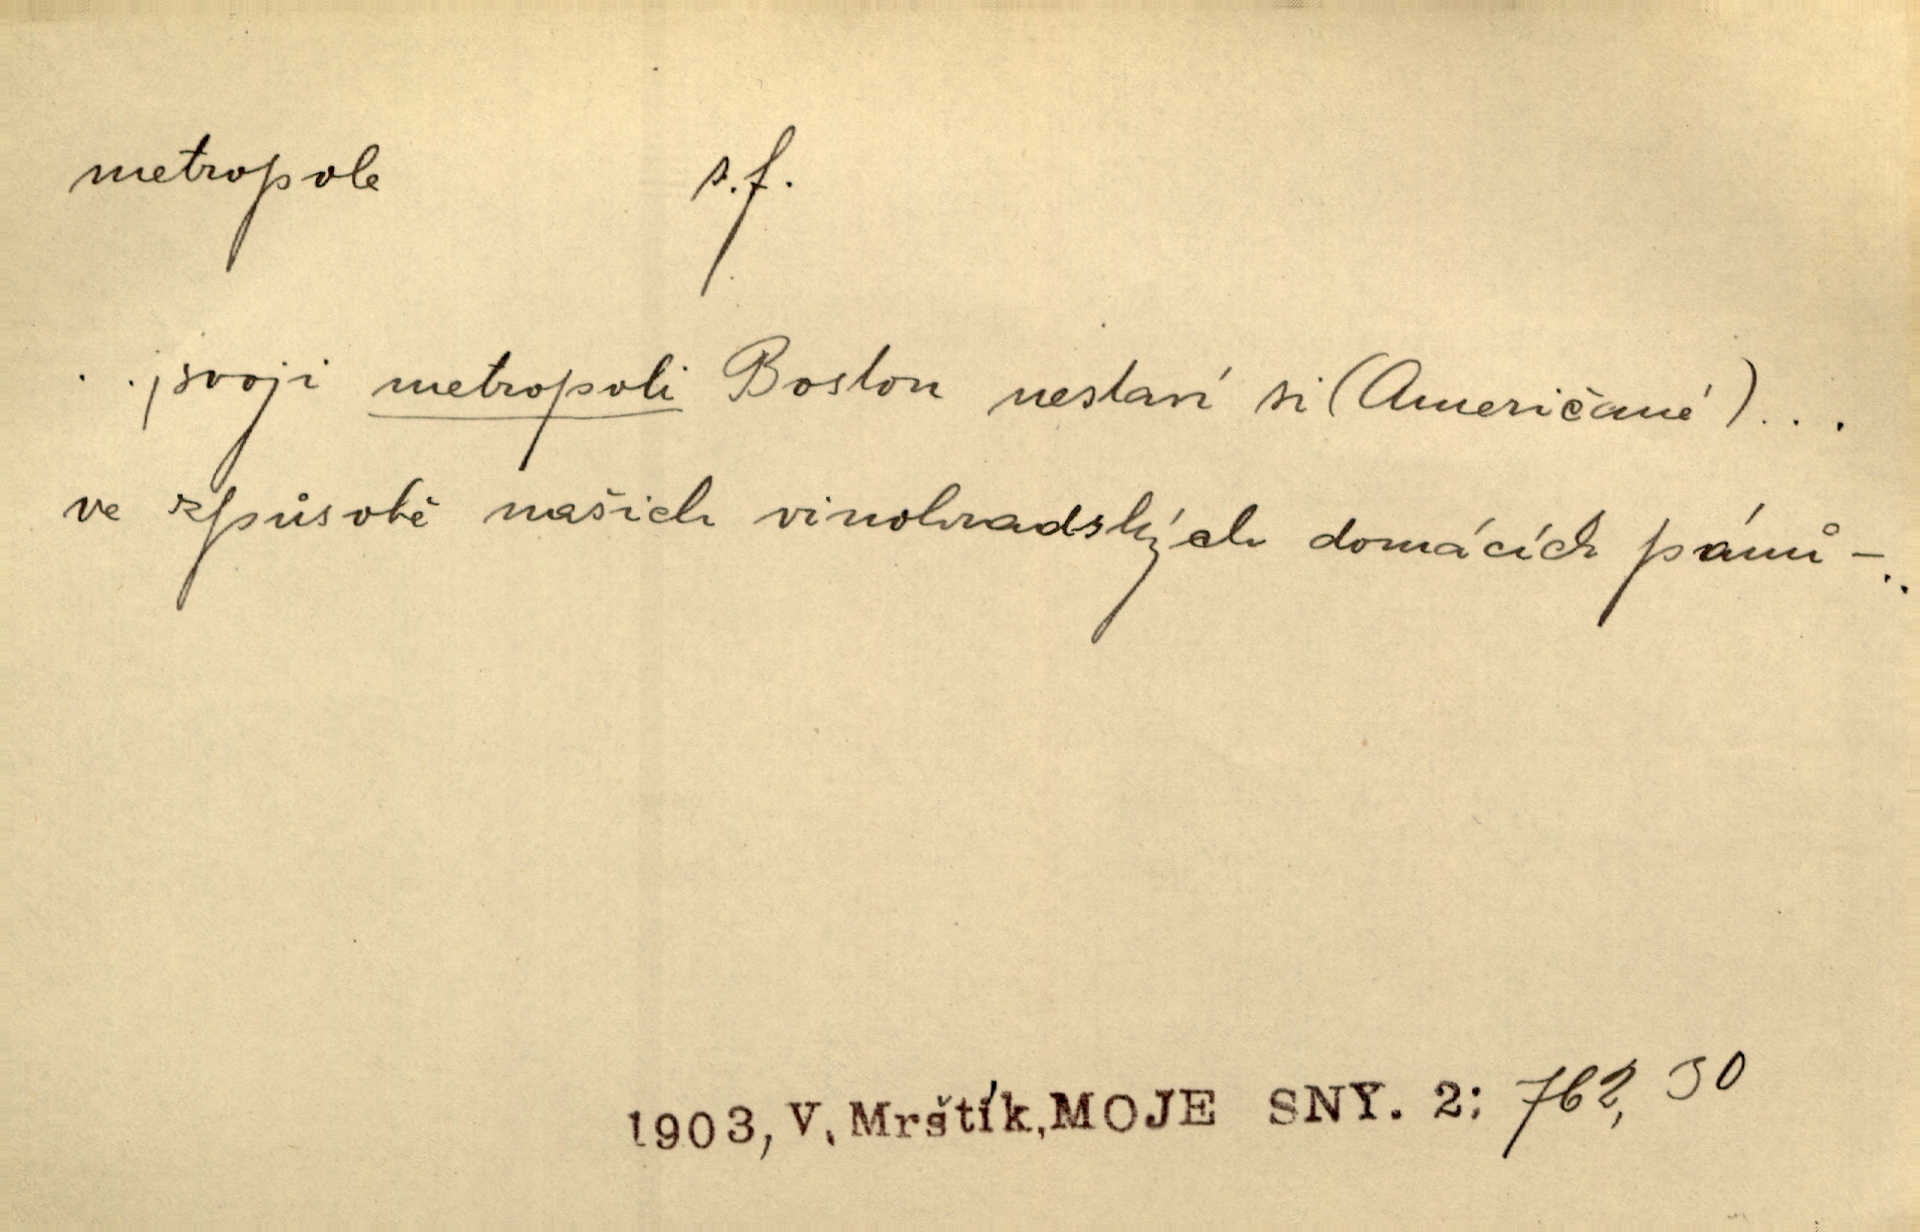 metropole s.f.
. ., svoji metropoli Boston nestaví si (Američané) . . .
ve způsobě našich vinohradských domácích pánů – . .
1903, V. Mrštík, MOJE SNY. 2: 762, 30